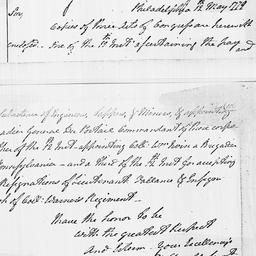 Philadelphia May 1779
Sir,
Copies of three Acts of Congress are herewith
enclosed. One of the Inst. ascertaining the pay and
Subsistence of Engineers, Sappers, & Miners, & appointing
General Du Portail Commandant of those corps
of the Inst. appointing Coll. Irvin a Brigadier
Pennsylvania - and a third of the Inst. for accepting
Resignations of Lieutenant Vallance & Ensign
of Coll. Warners Regiment -
I have the honor to be
with the greatest respect
And Esteem. Your Excellency's